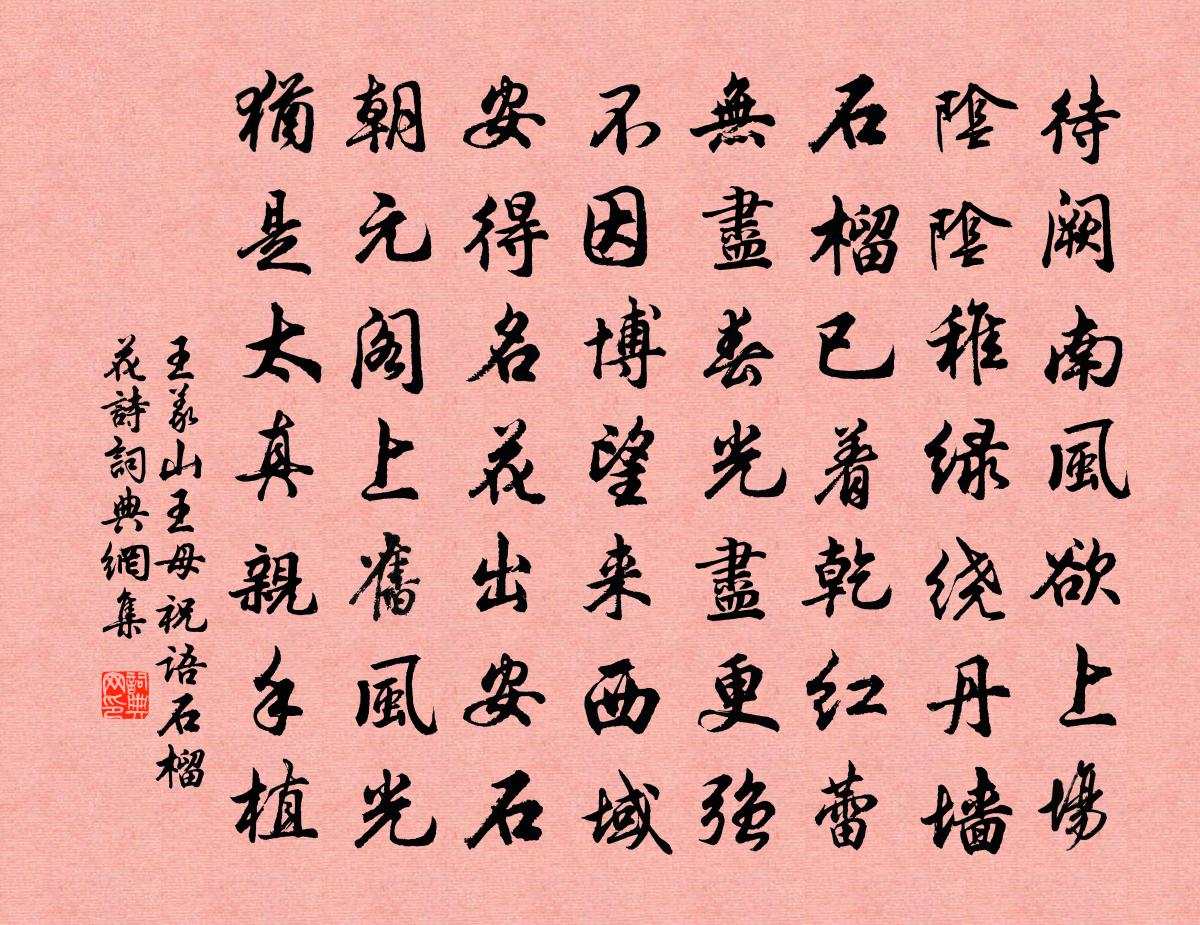 待阙南風欲上場
陰陰稚緑绕丹墙
石榴已着乾红蕾
無盡春光盡更強
不因博望来西域
安得名花出安石
朝元阁上舊風光
猶是太真親手植
王义山王母祝语石榴
花詩詞典網集
詞典网印